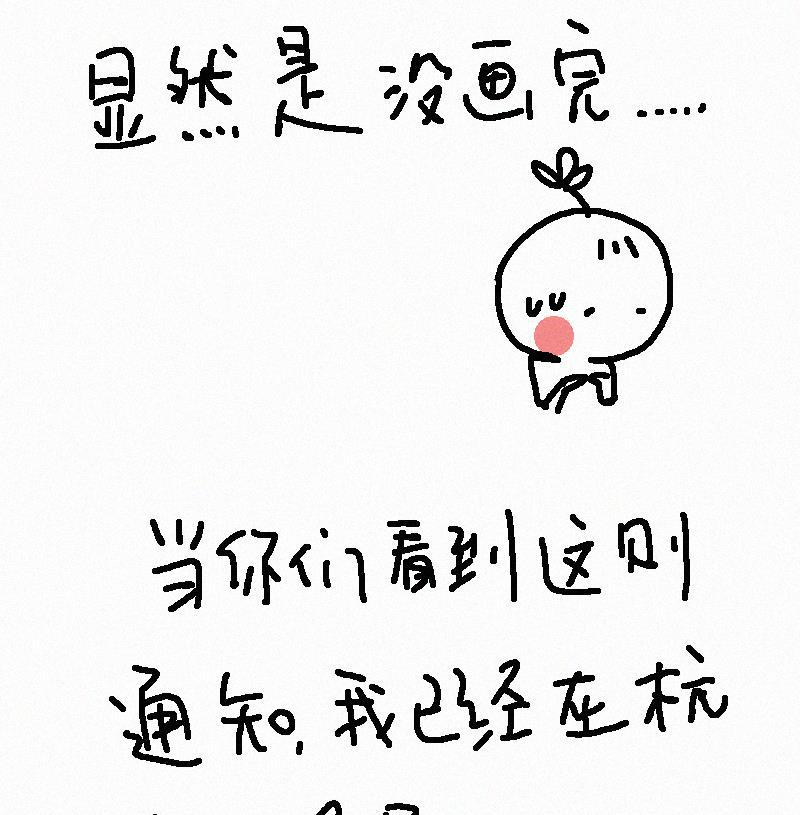 显然是没画完.....
当你们看到这则
通知,我已经在杭